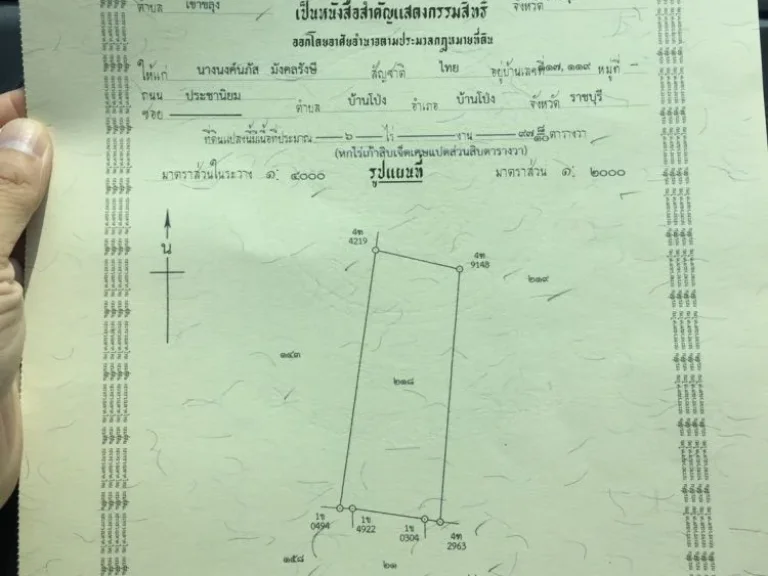 ตำบล เขาขลุง จังหวัด
เป็นหนังสือสำคัญแสดงกรรมสิทธิ์
ออกโดยอาศัยอำนาจตามประมวลกฎหมายที่ดิน
ให้แก่ นางนงค์นภัส มังคลรังษี สัญชาติ ไทย อยู่บ้านเลขที่ ๑๗, ๑๑๙ หมู่ที่ —
ถนน ประชานิยม ตำบล บ้านโป่ง อำเภอ บ้านโป่ง จังหวัด ราชบุรี
ซอย
ที่ดินแปลงนี้มีเนื้อที่ประมาณ ๖ ไร่ — งาน ๙๗ ๘/๑๐ ตารางวา
(หกไร่เก้าสิบเจ็ดเศษแปดส่วนสิบตารางวา)
มาตราส่วนในระวาง ๑: ๔๐๐๐ รูปแผนที่ มาตราส่วน ๑: ๒๐๐๐
น
4ฑ
4219
4ฑ
9148
๒๑๙
๑๔๓
๒๑๘
1ข
0494
1ข
4922
1ข
0304
4ฑ
2963
๑๕๘
๒๑